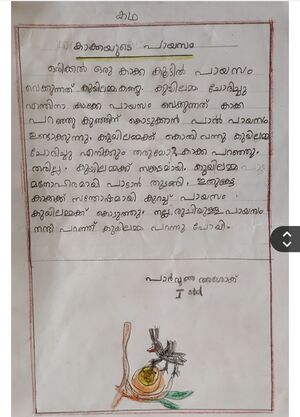 കഥ
കാക്കയുടെ പായസം
ഒരിക്കൽ ഒരു കാക്ക കൂട്ടിൽ പായസം
വെക്കുന്നത് കുയിലമ്മ കണ്ടു. കുയിലമ്മ ചോദിച്ചു
എന്തിനാ കാക്കേ പായസം വെക്കുന്നത് കാക്ക
പറഞ്ഞു കുഞ്ഞിന് കൊടുക്കാൻ പാൽ പായസം
ഉണ്ടാക്കുന്നു. കുയിലമ്മക്ക് കൊതി വന്നു കുയിലമ്മ
ചോദിച്ചു എനിക്കും തരുമോ? കാക്ക പറഞ്ഞു,
തരില്ല. കുയിലമ്മക്ക് സങ്കടമായി. കുയിലമ്മ
മനോഹരമായി പാടാൻ തുടങ്ങി. ഇതുകേട്ട
കാക്കക്ക് സന്തോഷമായി കുറച്ച് പായസം
കുയിലമ്മക്ക് കൊടുത്തു. നല്ല രുചിയുള്ള പായസം
നന്ദി പറഞ്ഞ് കുയിലമ്മ പറന്നു പോയി.
പാർവ്വണ അശോക്
I std